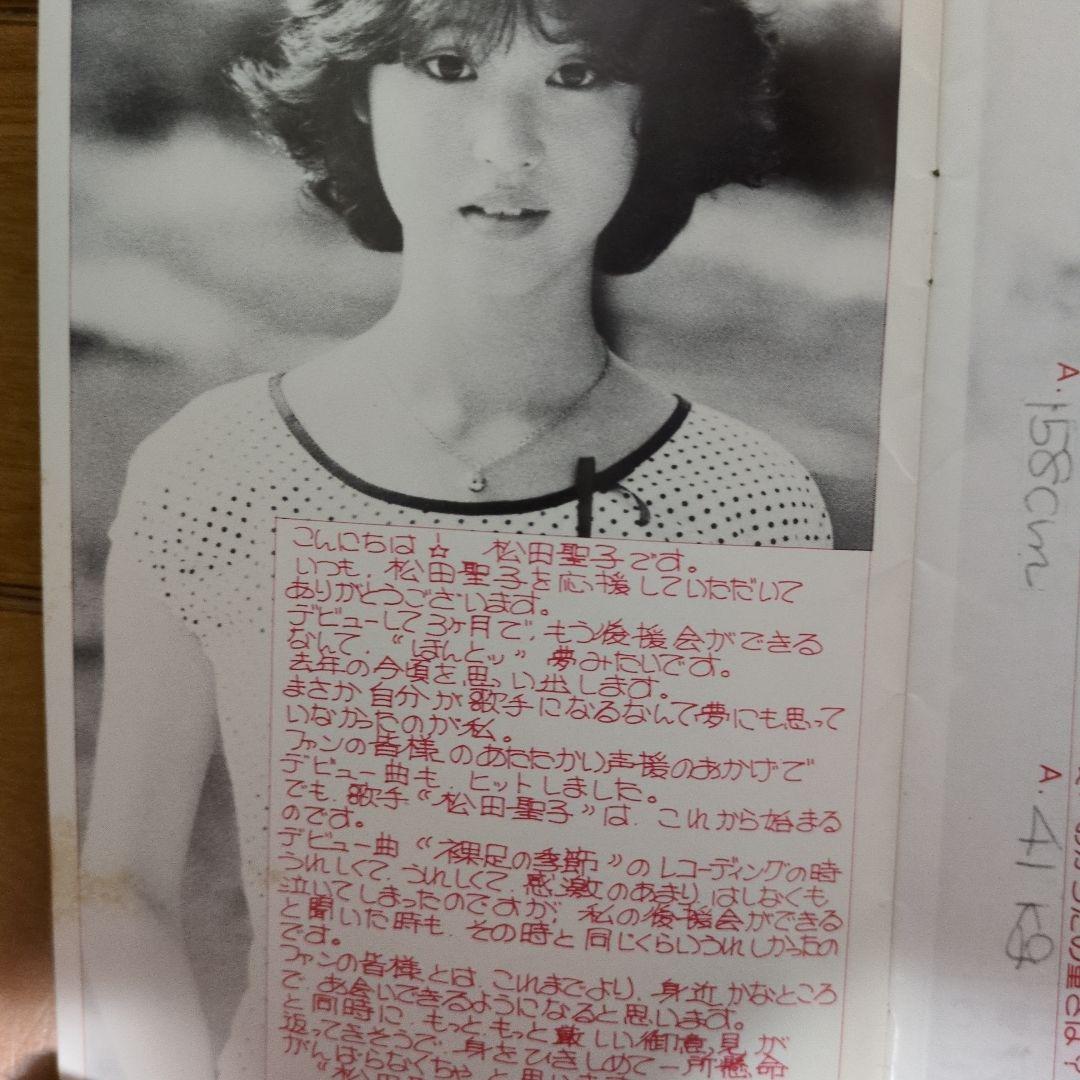 こんにちは☆ 松田聖子です。
いつも、松田聖子を応援していただいて
ありがとうございます。
デビューして3ヶ月で、もう後援会ができる
なんて、“ほんとッ”夢みたいです。
去年の今頃を思い出します。
まさか自分が歌手になるなんて夢にも思って
いなかったのが私。
ファンの皆様のあたたかい声援のおかげで
デビュー曲も、ヒットしました。
でも、歌手“松田聖子”は、これから始まる
のです。
デビュー曲“裸足の季節”のレコーディングの時
うれしくて、うれしくて、感激のあまり、はしなくも、
泣いてしまったのですが、私の後援会ができる
と聞いた時も、その時と同じくらいうれしかったの
です。
ファンの皆様とは、これまでより、身近かなところ
で、お会いできるようになると思います。
と同時に、もっと、もっと厳しい御意見が
返ってきそうで、身をひきしめて一所懸命
がんばらなくちゃと思います
A.158cm
A.41kg